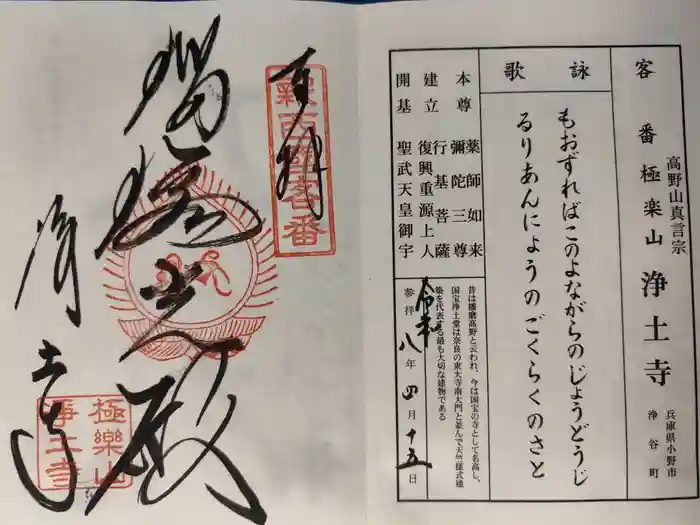 客番 極楽山 浄土寺
高野山真言宗
兵庫県小野市
浄谷町
詠歌
もおずればこのよながらのじょうどうじ
るりあんにょうのごくらくのさと
本尊 薬師如来
彌陀三尊
建立 行基菩薩
復興重源上人
開基 聖武天皇御宇
昔は播磨高野と云われ、今は国宝の寺として名高し、
国宝浄土堂は奈良の東大寺南大門と並んで天竺様式建
築を代表する最も大切な建物である
参拝 令和八年四月十五日
奉拝
瑠璃光殿
浄土寺
極樂山
淨土寺